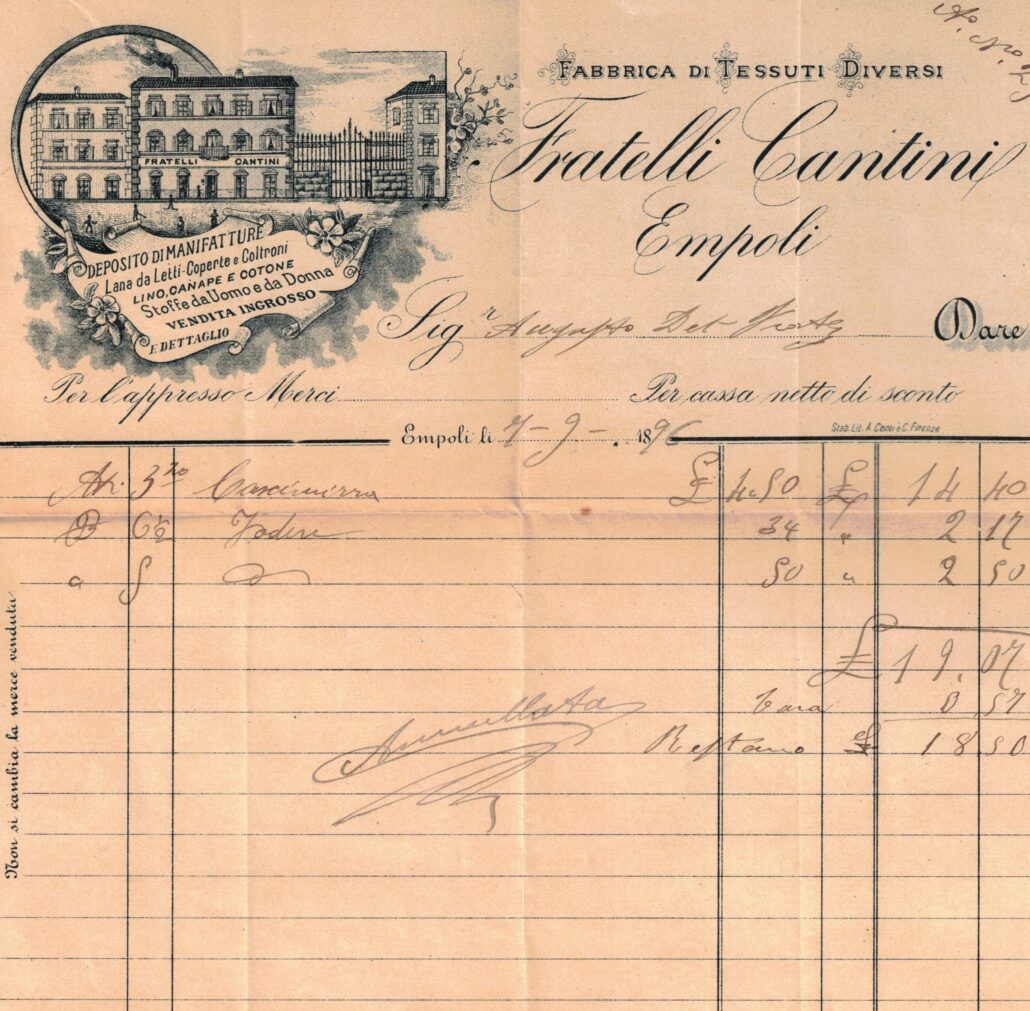 FABBRICA DI TESSUTI DIVERSI
Fratelli Cantini
Empoli
FRATELLI CANTINI
DEPOSITO DI MANIFATTURE
Lana da Letti-Coperte e Coltroni
LINO, CANAPE E COTONE
Stoffe da Uomo e da Donna
VENDITA INGROSSO
E DETTAGLIO
Sig.r Augusto Del Dare
Per l'appresso Merci Per cassa netto di sconto
Empoli li 7-9-. 1896
Stab. Lit. A. Conti e C. Firenze
3 £ 4.80 £ 14 40
6½ Fodere 34 " 2 17
a 5 50 " 2 50
£ 19.07
Tara 0.57
Restano £ 18.50
Annullata
Non si cambia la merce venduta